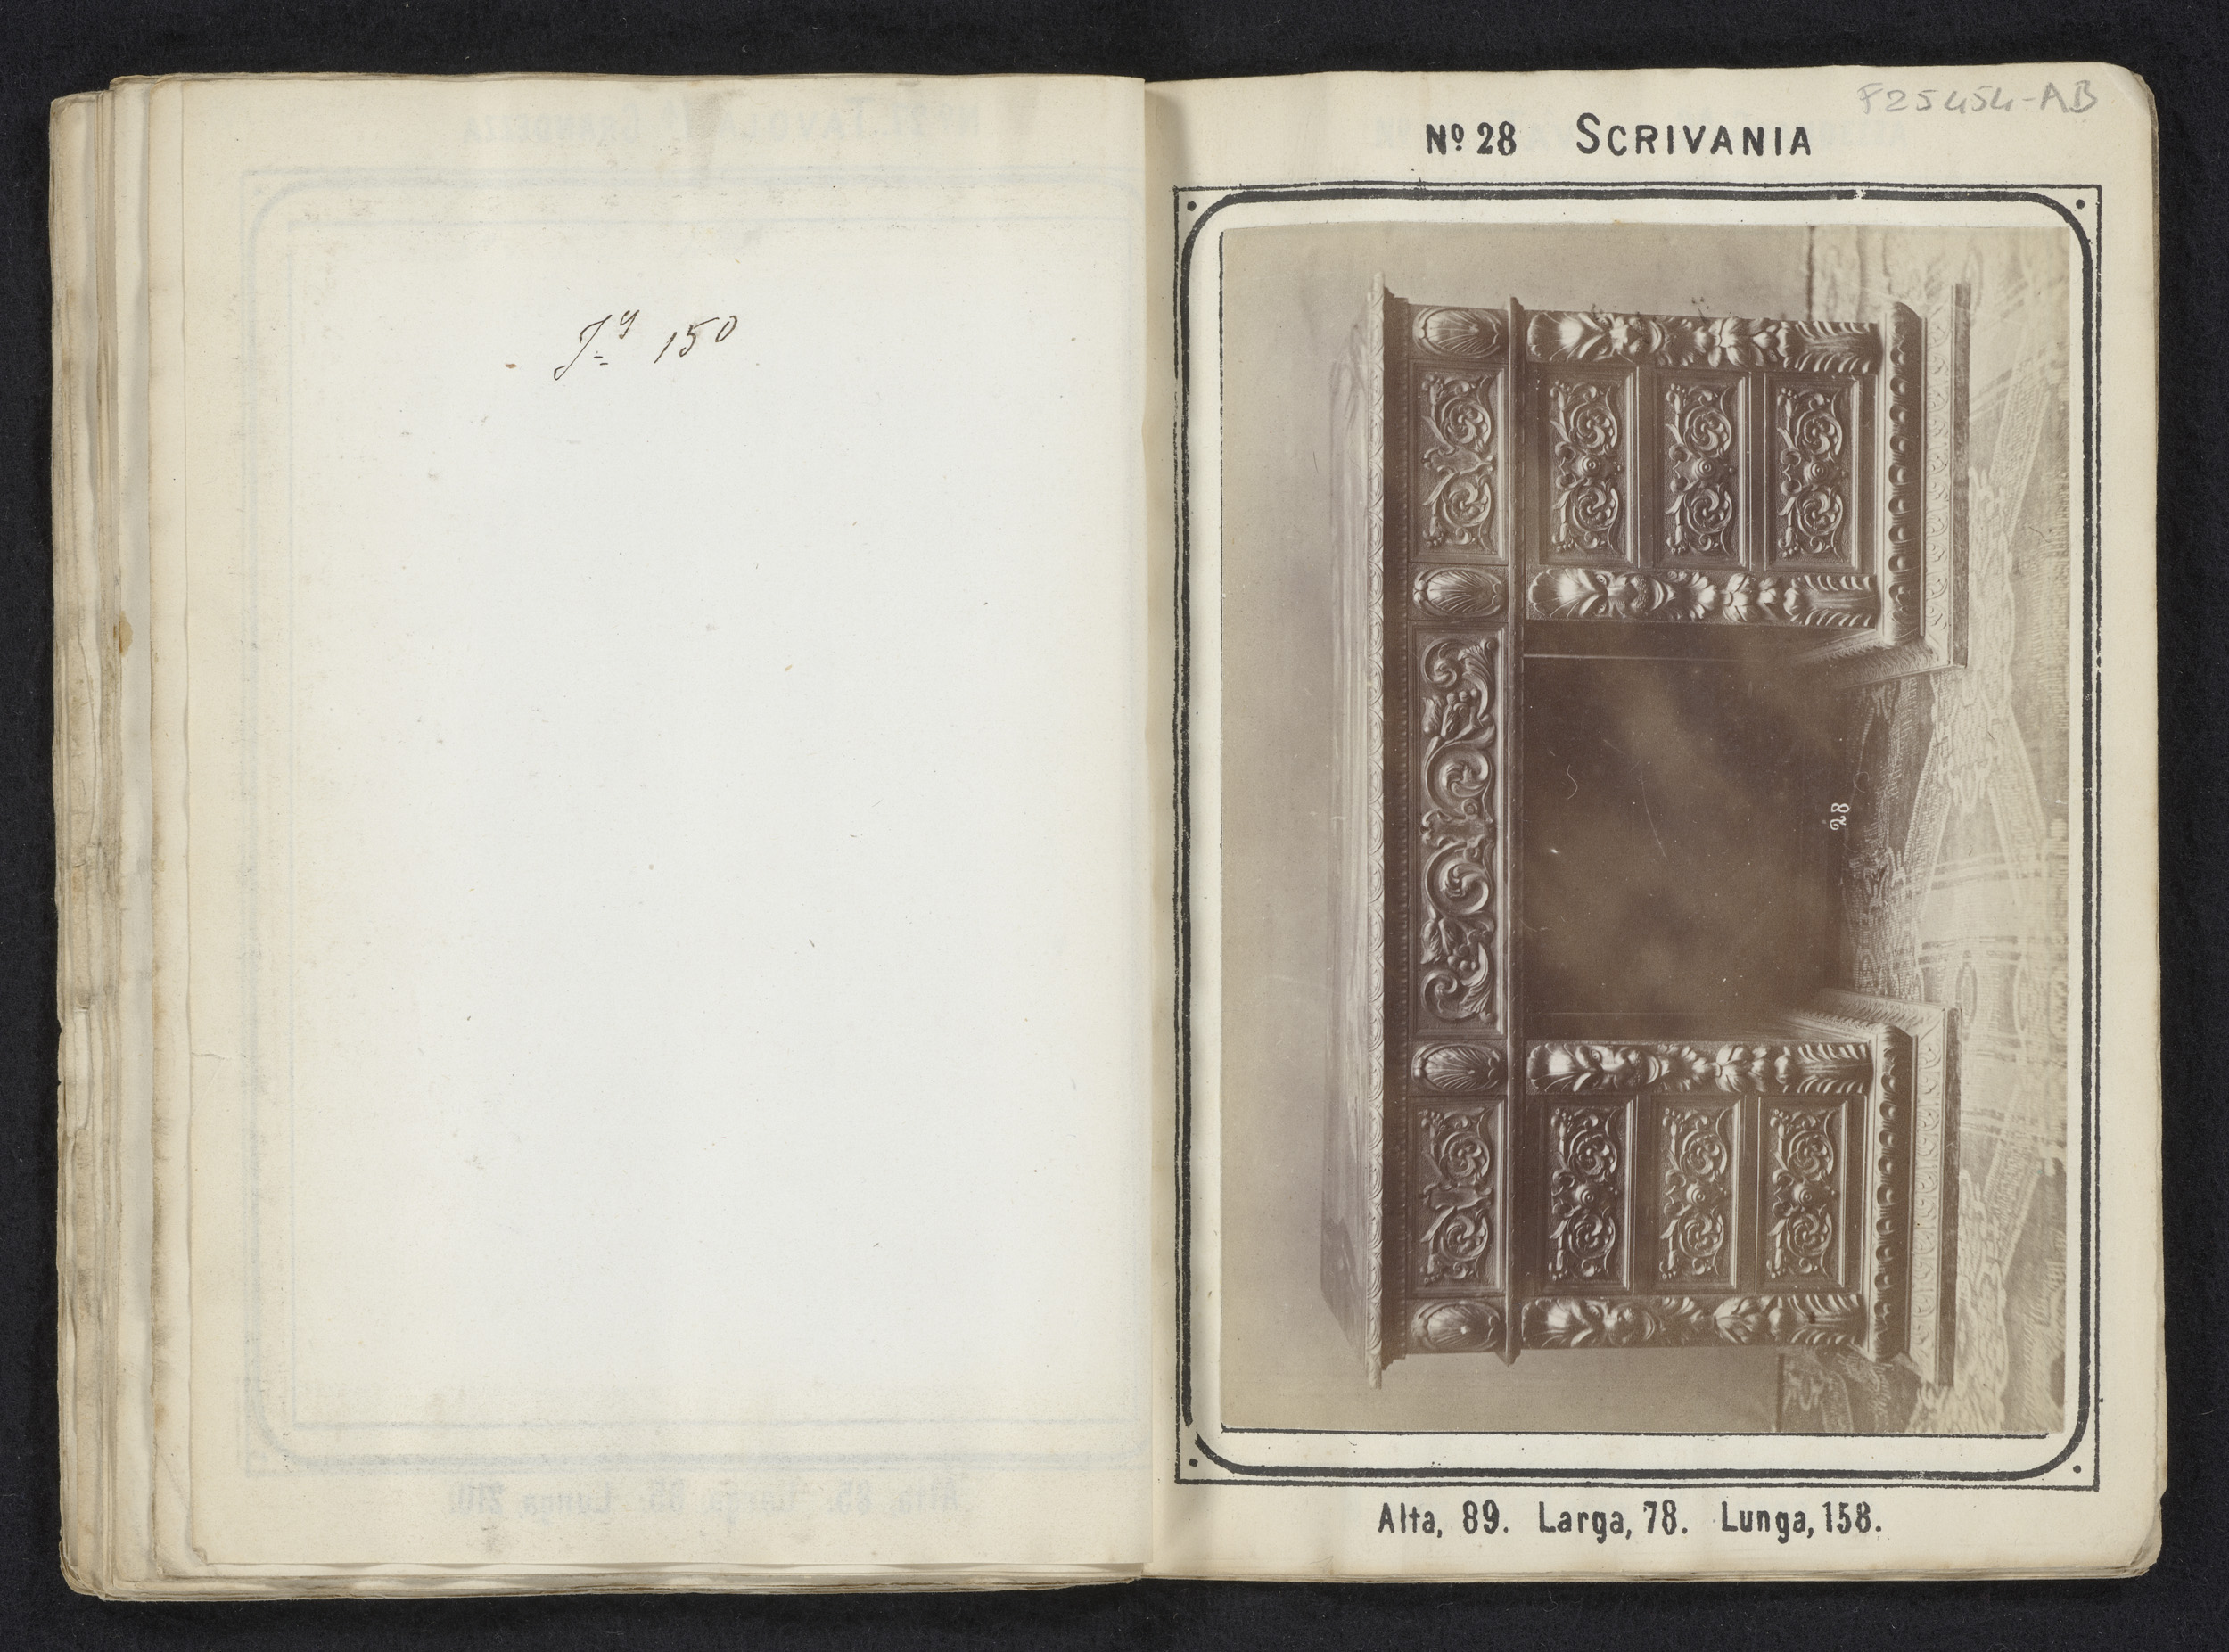 150
F25454-AB
Nº 28 SCRIVANIA
28
Alta, 89. Larga, 78. Lunga, 158.